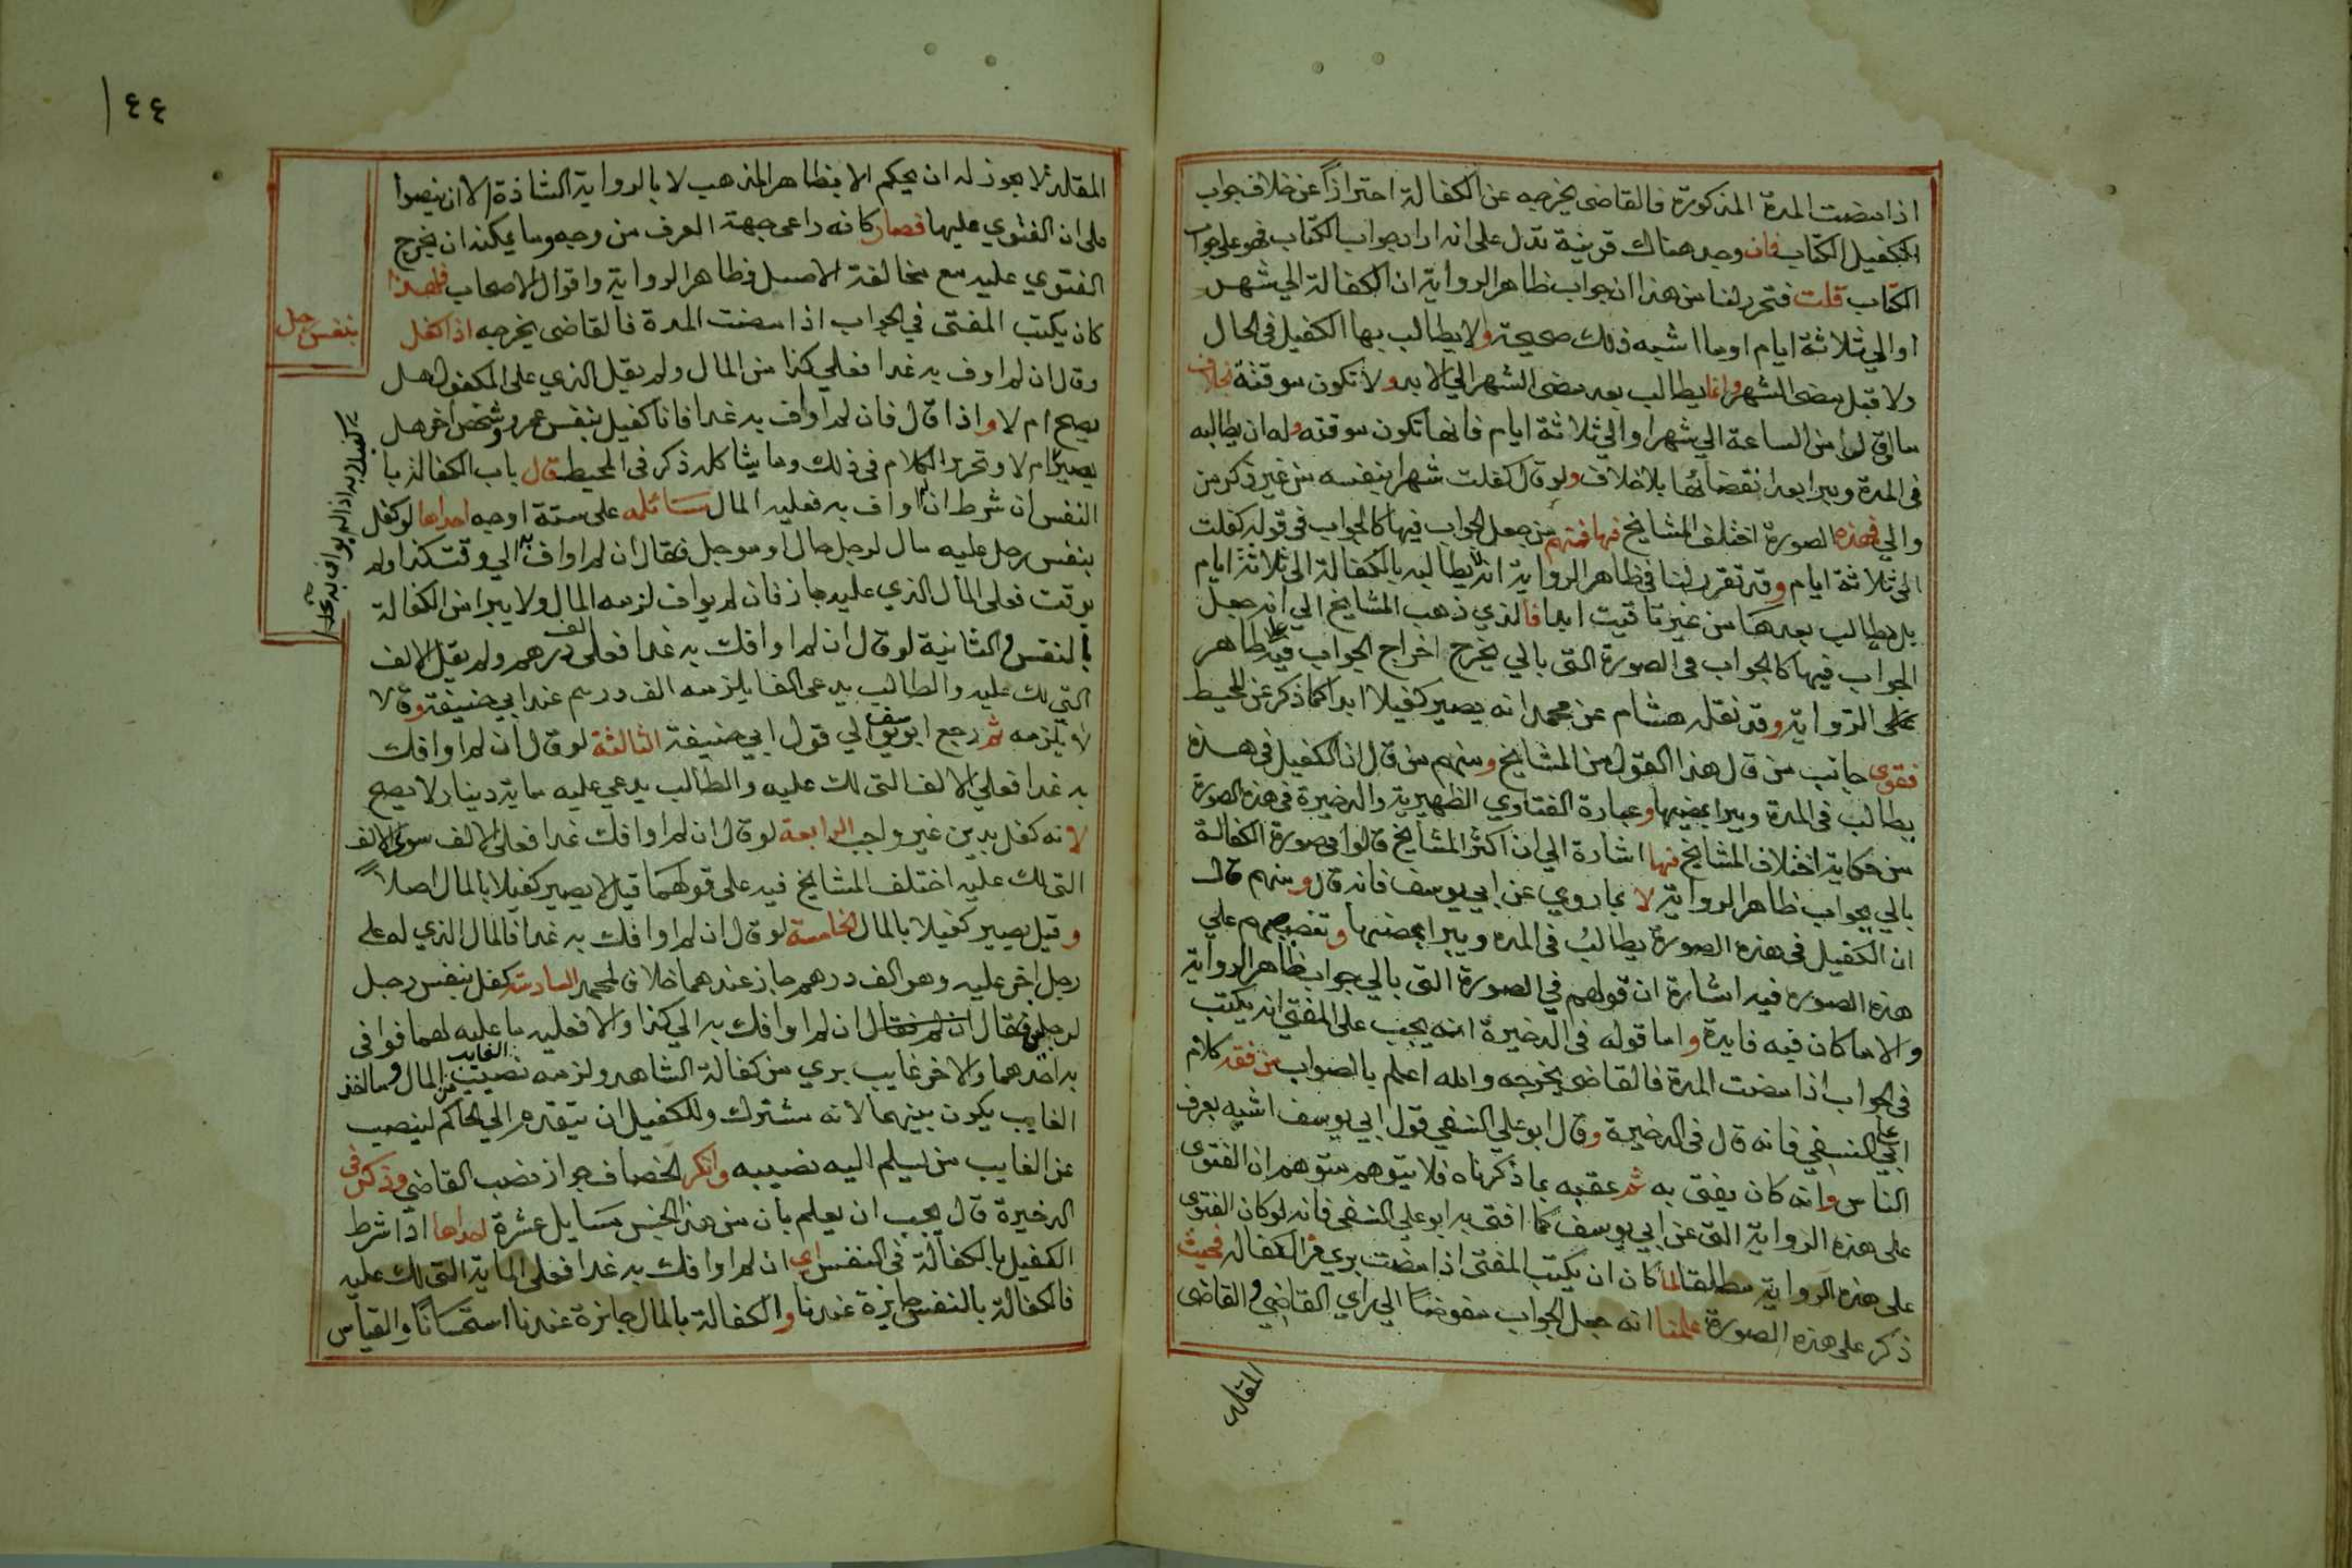 اذا مضت المدة المذكورة فالقاضى يخرجه عن الكفالة احترازاً عن خلاف جواب
الكتاب فان وجد هناك قرينة تدل على انه اراد جواب الكتاب فهو على جواب
الكتاب قلت فتحرر لنا من هذا ان جواب ظاهر الرواية ان الكفالة الي شهر
او الي ثلاثة ايام او ما اشبه ذلك صحيحة ولا يطالب بها الكفيل فى الحال
ولا قبل مضى الشهر وانما يطالب بعد مضى الشهر الي الابد ولا تكون موقتة بخلاف
ما لو قال من الساعة الي شهر او الي ثلاثة ايام فانها تكون موقته وله ان يطالبه
فى المدة ويبرا بعد انقضائها بلا خلاف ولو قال كفلت شهرا بنفسه من غير ذكر من
والي فهذه الصورة اختلف المشايخ فيها فمنهم من جعل الجواب فيها كالجواب فى قوله كفلت
الى ثلاثة ايام وقد تقرر لنا فى ظاهر الرواية انه لا يطالبه بالكفالة الى ثلاثة ايام
بل يطالب بعدها من غير تاقيت ابدا فالذي ذهب المشايخ الي انه جعل
الجواب فيها كالجواب فى الصورة التى بالي يخرج اخراج الجواب فيه على ظاهر
الرواية وقد نقله هشام عن محمد انه يصير كفيلا ابدا كما ذكر عن المحيط
فقوى جانب من قال هذا القول من المشايخ ومنهم من قال ان الكفيل فى هذه
يطالب فى المدة ويبرا بمضيها وعبارة الفتاوي الظهيرية والذخيرة فى هذه الصورة
من حكاية اختلاف المشايخ فيها اشارة الي ان اكثر المشايخ قالوا فى صورة الكفالة
بالي بجواب ظاهر الرواية لا بما روي عن ابي يوسف فانه قال ومنهم قال
ان الكفيل فى هذه الصورة يطالب فى المدة ويبرا بمضيها وتخصيصهم علي
هذه الصورة فيه اشارة ان قولهم في الصورة التى بالي جواب ظاهر الرواية
والا ما كان فيه فايدة واما قوله فى الذخيرة انه يجب على المفتى ان يكتب
فى الجواب اذا مضت المدة فالقاضى يخرجه والله اعلم بالصواب من فقه كلام
ابي علي النسفي فانه قال فى الذخيرة وقال ابو علي النسفي قول ابي يوسف اشبه بعرف
الناس وانه كان يفتى به ثم عقبه بما ذكرناه فلا يتوهم متوهم ان الفتوى
على هذه الرواية التى عن ابي يوسف كما افتى به ابو علي النسفى فانه لو كان الفتوى
على هذه الرواية مطلقا لما كان ان يكتب المفتى اذا مضت بري من الكفالة فحيث
ذكر على هذه الصورة علمنا انه جعل الجواب مفوضا الي راي القاضي والقاضى
المقلد
١٤٤
المقلد لا يجوز له ان يحكم الا بظاهر المذهب لا بالرواية الشاذة الا ان ينصوا
على ان الفتوي عليها فصار كانه راعى جهة العرف من وجه وما يمكنه ان يخرج
الفتوي عليه مع مخالفة الاصل وظاهر الرواية واقوال الاصحاب فلهذا
كان يكتب المفتى في الجواب اذا مضت المدة فالقاضى يخرجه اذا كفل
بنفس رجل
وقال ان لم اوف به غدا فعلي كذا من المال ولم يقل الذي على المكفول هل
يصح ام لا واذا قال فان لم اواف به غدا فانا كفيل بنفس عمرو وشخص اخر هل
يصير ام لا وتحرير الكلام فى ذلك وما يشاكله ذكر فى المحيط قال باب الكفالة با
النفس ان شرط ان لم اواف به فعليه المال مسائله على ستة اوجه احداها لو كفل
بنفس رجل عليه مال لرجل حال او موجل فقال ان لم اواف به الي وقت كذا ولم
يوقت فعلى المال الذي عليه جاز فان لم يواف لزمه المال ولا يبرا من الكفالة
بالنفس والثانية لو قال ان لم اوافك به غدا فعلى الف درهم ولم يقل الالف
التى لك عليه والطالب يدعى الفا يلزمه الف درهم عند ابي حنيفة وقالا
لا يلزمه ثم رجع ابو يوسف الي قول ابي حنيفة الثالثة لو قال ان لم اوافك
به غدا فعلي الالف التى لك عليه والطالب يدعي عليه ماية دينار لا يصح
لانه كفل بدين غير واجب الرابعة لو قال ان لم اوافك غدا فعلى الالف سوى الالف
التى لك عليه اختلف المشايخ فيه على قولهما قيل لا يصير كفيلا بالمال اصلاً
وقيل يصير كفيلا بالمال الخامسة لو قال ان لم اوافك به غدا فالمال الذي له على
رجل اخر عليه وهو الف درهم جاز عندهما خلافا لمحمد السادسة كفل بنفس رجل
لرجلين فقال ان لم فقال ان لم اوافك به الي كذا والا فعليه ما عليه لهما فوافى
به احدهما والاخر غايب بري من كفالة الشاهد ولزمه نصيب الغايب من المال وما اخذ
الغايب يكون بينهما لانه مشترك وللكفيل ان يتقدم الي الحاكم لينصب
عن الغايب من يسلم اليه نصيبه وانكر الخصاف جواز نصب القاضي وذكر فى
الذخيرة قال يجب ان يعلم بان من هذا الجنس مسايل عشرة احداها اذا شرط
الكفيل بالكفالة فى النفس اي ان لم اوافك به غدا فعلى الماية التى لك عليه
فالكفالة بالنفس جايزة عندنا والكفالة بالمال جايزة عندنا استحسانا والقياس